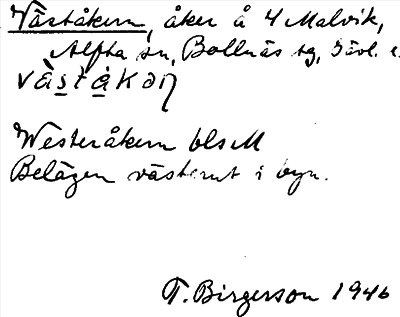 Väståkern, åker å 4 Malvik,
Alfta sn, Bollnäs tg, Gävl. l.
väståkəṇ
Westeråkern blsM
Belägen västerut i byn.
T. Birgerson 1946